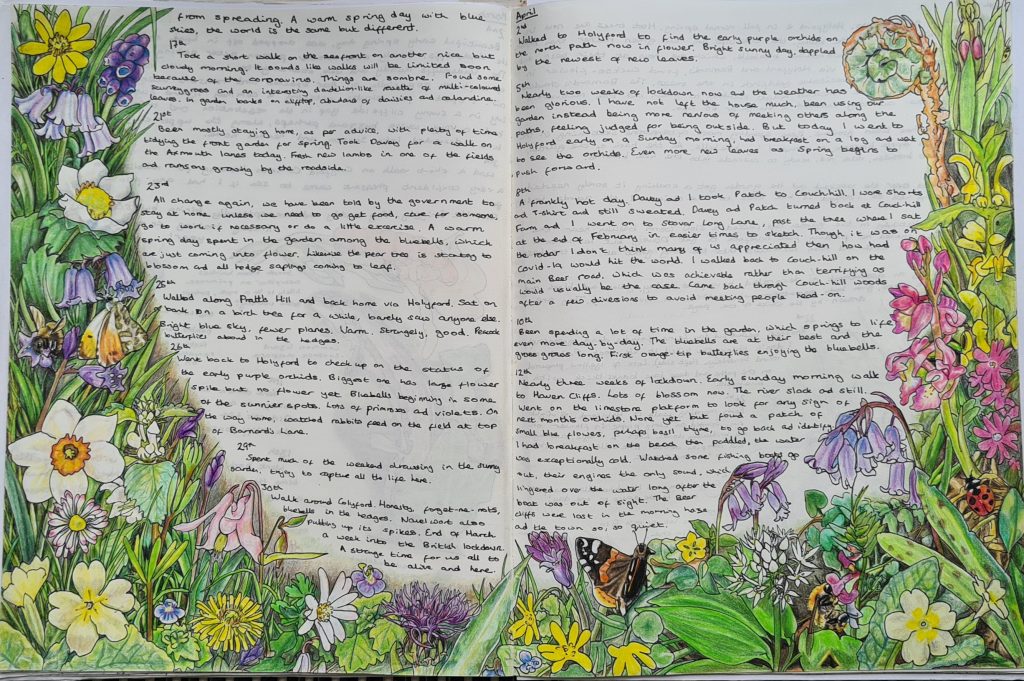 from spreading. A warm spring day with blue
skies, the world is the same but different.
17th
Took a short walk on the seafront. Another nice but
cloudy morning. It sounds like walks will be limited soon
because of the coronavirus. Things are sombre. Found some
scurveygrass and an interesting dandelion-like rosette of multi-coloured
leaves. In garden banks on clifftop, abundant of daisies and celandine.
21st
Been mostly staying home, as per advice, with plenty of time
tidying the front garden for spring. Took Davey for a walk on
the Axmouth lanes today. Fresh new lambs in one of the fields
and ransons growing by the roadside.
23rd
All change again, we have been told by the government to
stay at home, unless we need to go get food, care for someone,
go to work if necessary or do a little excercise. A warm
spring day spent in the garden among the bluebells, which
are just coming into flower. Likewise the pear tree is starting to
blossom and all hedge saplings coming to leaf.
25th
Walked along Prattls Hill and back home via Holyford. Sat on
bank on a birch tree for a while, barely saw anyone else.
Bright blue sky, fewer planes. Warm. Strangely, good. Peacock
butterflies abound in the hedges.
26th
Went back to Holyford to check up on the status of
the early purple orchids. Biggest one has large flower
spike but no flower yet. Bluebells beginning in some
of the sunnier spots. Lots of primroses and violets. On
the way home, watched rabbits feed on the field at top
of Barnards Lane.
29th
Spent much of the weekend drawing in the sunny
garden, trying to capture all the life here.
30th
Walk around Colyford. Honesty, forget-me-nots,
bluebells in the hedges. Navelwort also
putting up its spikes. End of March
a week into the British lockdown.
A strange time for us all to
be alive and here.
April
2nd
Walked to Holyford to find the early purple orchids on
the north path now in flower. Bright sunny day, dappled
by the newest of new leaves.
5th
Nearly two weeks of lockdown now and the weather has
been glorious. I have not left the house much, been using our
garden instead being more nervous of meeting others along the
paths, feeling judged for being outside. But today I went to
Holyford early on a Sunday morning, had breakfast on a log and went
to see the orchids. Even more new leaves as Spring begins to
push forward.
A frankly hot day. Davey and I took Patch to Couchill. I wore shorts
and T-shirt and still sweated. Davey and Patch turned back at Couchill
Farm and I went on to Stover Long Lane, past the tree where I sat
at the end of February in easier times to sketch. Though it was on
the radar I don't think many of us appreciated then how hard
Covid-19 would hit the world. I walked back to Couch-hill on the
main Beer road, which was achievable rather than terrifying as
would usually be the case. Came back through Couch-hill woods
after a few diversions to avoid meeting people head-on.
10th
Been spending a lot of time in the garden, which springs to life
even more day-by-day. The bluebells are at their best and the
grass grows long. First orange-tip butterflies enjoying the bluebells.
12th
Nearly three weeks of lockdown. Early sunday morning walk
to Haven Cliffs. Lots of blossom now. The river slack and still.
Went on the limestone platform to look for any sign of
next months orchids. None yet but found a patch of
small blue flowers, perhaps basil thyme, to go back and identify.
I had breakfast on the beach then paddled, the water
was exceptionally cold. Watched some fishing boats go
out, their engines the only sound, which
lingered over the water long after the
boat was out of sight. The Beer
cliffs were lost in the morning haze
and the town so, so quiet.